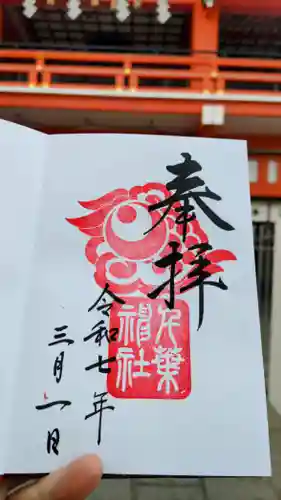 奉拝
千葉神社
令和七年
三月一日